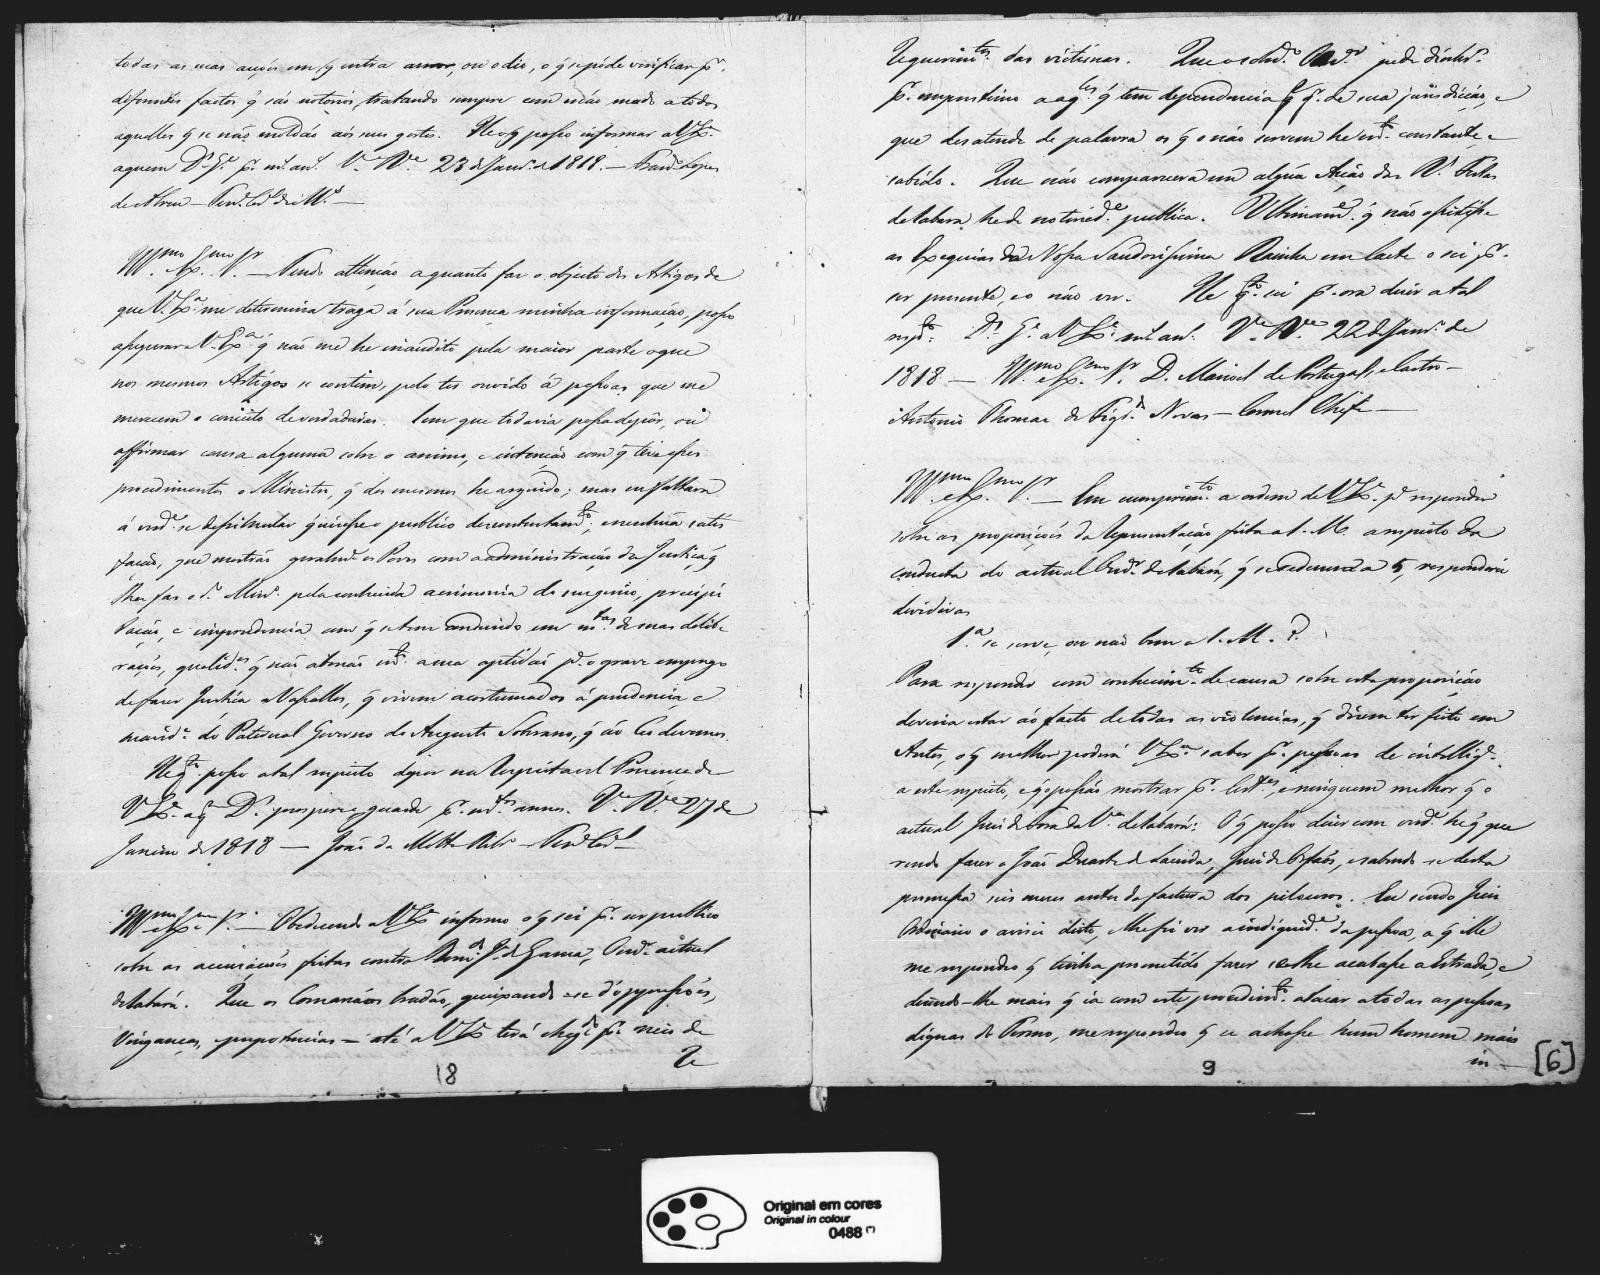 todas as suas acções em q entra amor, ou odio, o q se póde verificar p.r
differentes factos q são notorios, tratando sempre com máo modo a todos
aquelles q se não moldão aos seus gostos. He o q posso informar a V. Ex.ª
a quem D.s G.e p.r m.s an.s V.a R.a 23 de Janr.o de 1818. — Fran.co Lopes
de Abreu — Ten.e Cor.el de M.as —
Ill.mo Ex.mo Sr. — Tendo attenção a quanto faz o objecto dos Artigos de
que V. Ex.ª me determina traga á sua Presença minha informação, posso
assegurar a V. Ex.ª q não me he inaudito pela maior parte o que
nos mesmos Artigos se contém, pelo ter ouvido á pessoas que me
merecem o conceito de verdadeiras. Sem que todavia possa depôr, ou
affirmar cousa alguma sobre o animo, e intenção com q teve esses
procedimentos o Ministro, q dos mesmos he arguido; mas eu faltaria
á verd.e se dissimular quizesse o publico descontentam.to, e nenhuma satis
fação, que mostrão geralm.e os Povos com a administração da Justiça, q
lhes faz o d.o Minis.o pela conhecida acrimonia do seu genio, precipi
tação, e imprudencia com q se tem conduzido em m.tas de suas delibe
rações, qualid.es q não abonão m.to a sua aptidão p.a o grave emprego
de fazer Justiça a Vassallos, q vivem acostumados á prudencia e
mansid.e do Paternal Governo do Augusto Soberano, q ao Ceo devemos.
He q.to posso a tal respeito depor na Respeitavel Presença de
V. Ex.ª a q.m D.s prospere e guarde p.r m.tos annos. V.a R.a 27 de
Janeiro de 1818 — João da Motta Ribr.o — Ten.e Cor.el —
Ill.mo Ex.mo Sr. — Obedecendo a V. Ex.ª informo o q sei p.r ser publico
sobre as accusações feitas contra Ouvi.or actual
de Sabará. Que os Comarcãos bradão, queixando-se d'oppressões,
vinganças, prepotencias — até a V. Ex.ª terá cheg.do p.r meio de
Re
18
Requerim.tos das victimas. Que o d.o Ouv.or pede dinhr.o
p.r emprestimo a aq.les q tem dependencia de sua jurisdicção, e
que desattende de palavra os q o não servem he m.to constante, e
sabido. Que não comparecera em alguma Acção das R. Festas
de Sabará, he de notoried.e publica. Ultimam.e q não assistisse
as Exequias da Nossa Saudosissima Rainha em Caeté o sei p.r
ser presente, e o não ver. He q.to sei p.r ora dizer a tal
resp.to. D.s G.e a V. Ex.ª m.s an.s V.a R.a 22 de Janr.o de
1818. — Ill.mo Ex.mo Sr. D. Manoel de Portugal, e Castro —
Antonio Thomaz de Fig.do Neves — Coronel Chefe —
Ill.mo Ex.mo Sr. — Em cumprim.to a ordem de V. Ex.ª p.a responder
sobre as proposições da Representação feita a S. M. a respeito da
conducta do actual Ouv.or de Sabará, q se reduzem a 5, responderei
1.a se serve, ou não bem a S. M.?
Para responder com conhecim.to de causa sobre esta proposição
deveria estar ao facto de todas as violencias, q dizem ter feito em
Autos, o q melhor poderá V. Ex.ª saber p.r pessoas de intellig.a
a este respeito, e q o possão mostrar p.r e ninguem melhor q o
actual Juiz de Fora da V.a de Sabará: O q posso dizer com verd.e he q que
rendo fazer a João Duarte de Lacerda, Juiz de Orfãos, e sabendo-se desta
promessa seis mezes antes da factura dos pelouros. Eu sendo Juiz
Ordinario o avisei disto, e lhe fiz ver a indignid.e da pessoa, a q Elle
me respondeo q tinha promettido fazer se lhe acabasse a Estrada, e
dizendo-lhe mais q ia com este procedim.to atacar a todas as pessoas
dignas do Termo, me respondeo q se achasse hum homem mais
in —
9
[6]
Original em cores
Original in colour
0488 (*)